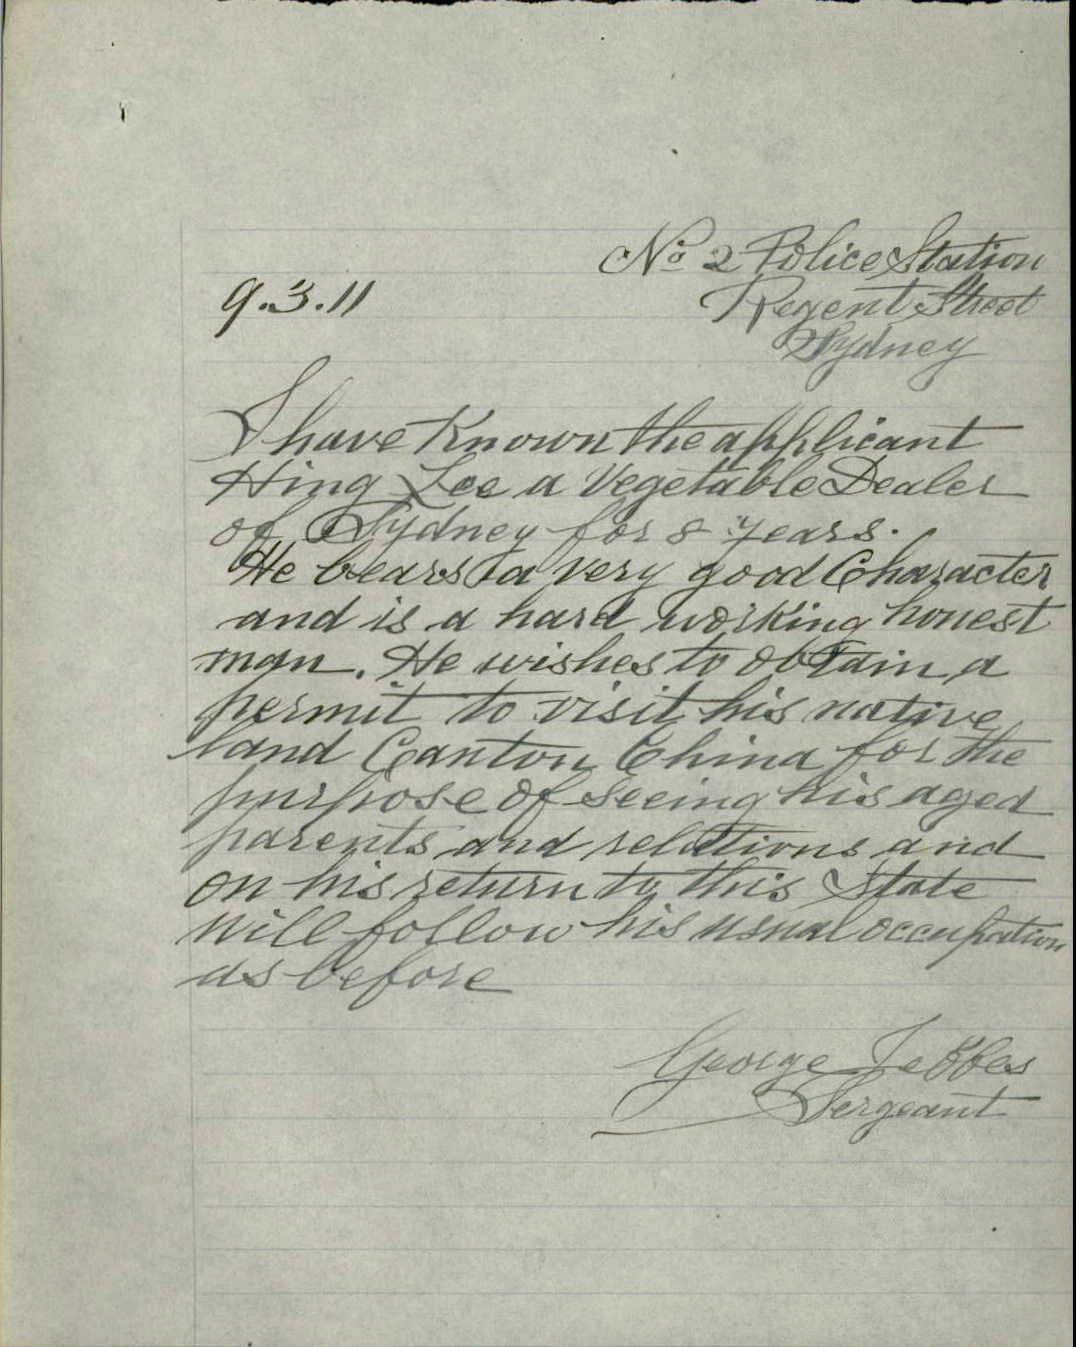 No 2 Police Station
9.3.11
Regent Street
Sydney
I have Known the applicant
Hing Lee a Vegetable Dealer
of Sydney for 8 years.
He bears a very good Character
and is a hard working honest
man. He wishes to obtain a
permit to visit his native
land Canton China for the
purpose of seeing his aged
parents and relations and
on his return to this State
will follow his usual occupation
as before
George Jebbes
Sergeant